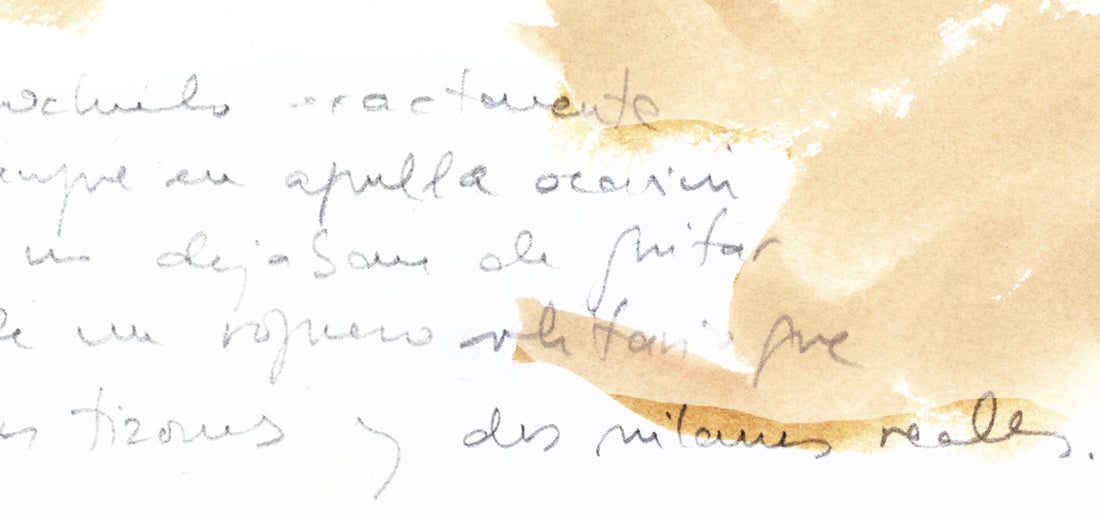 exactamente
en aquella ocasión
no dejaban de gritar
de un roquero solitario que
tizones y dos milanos reales.